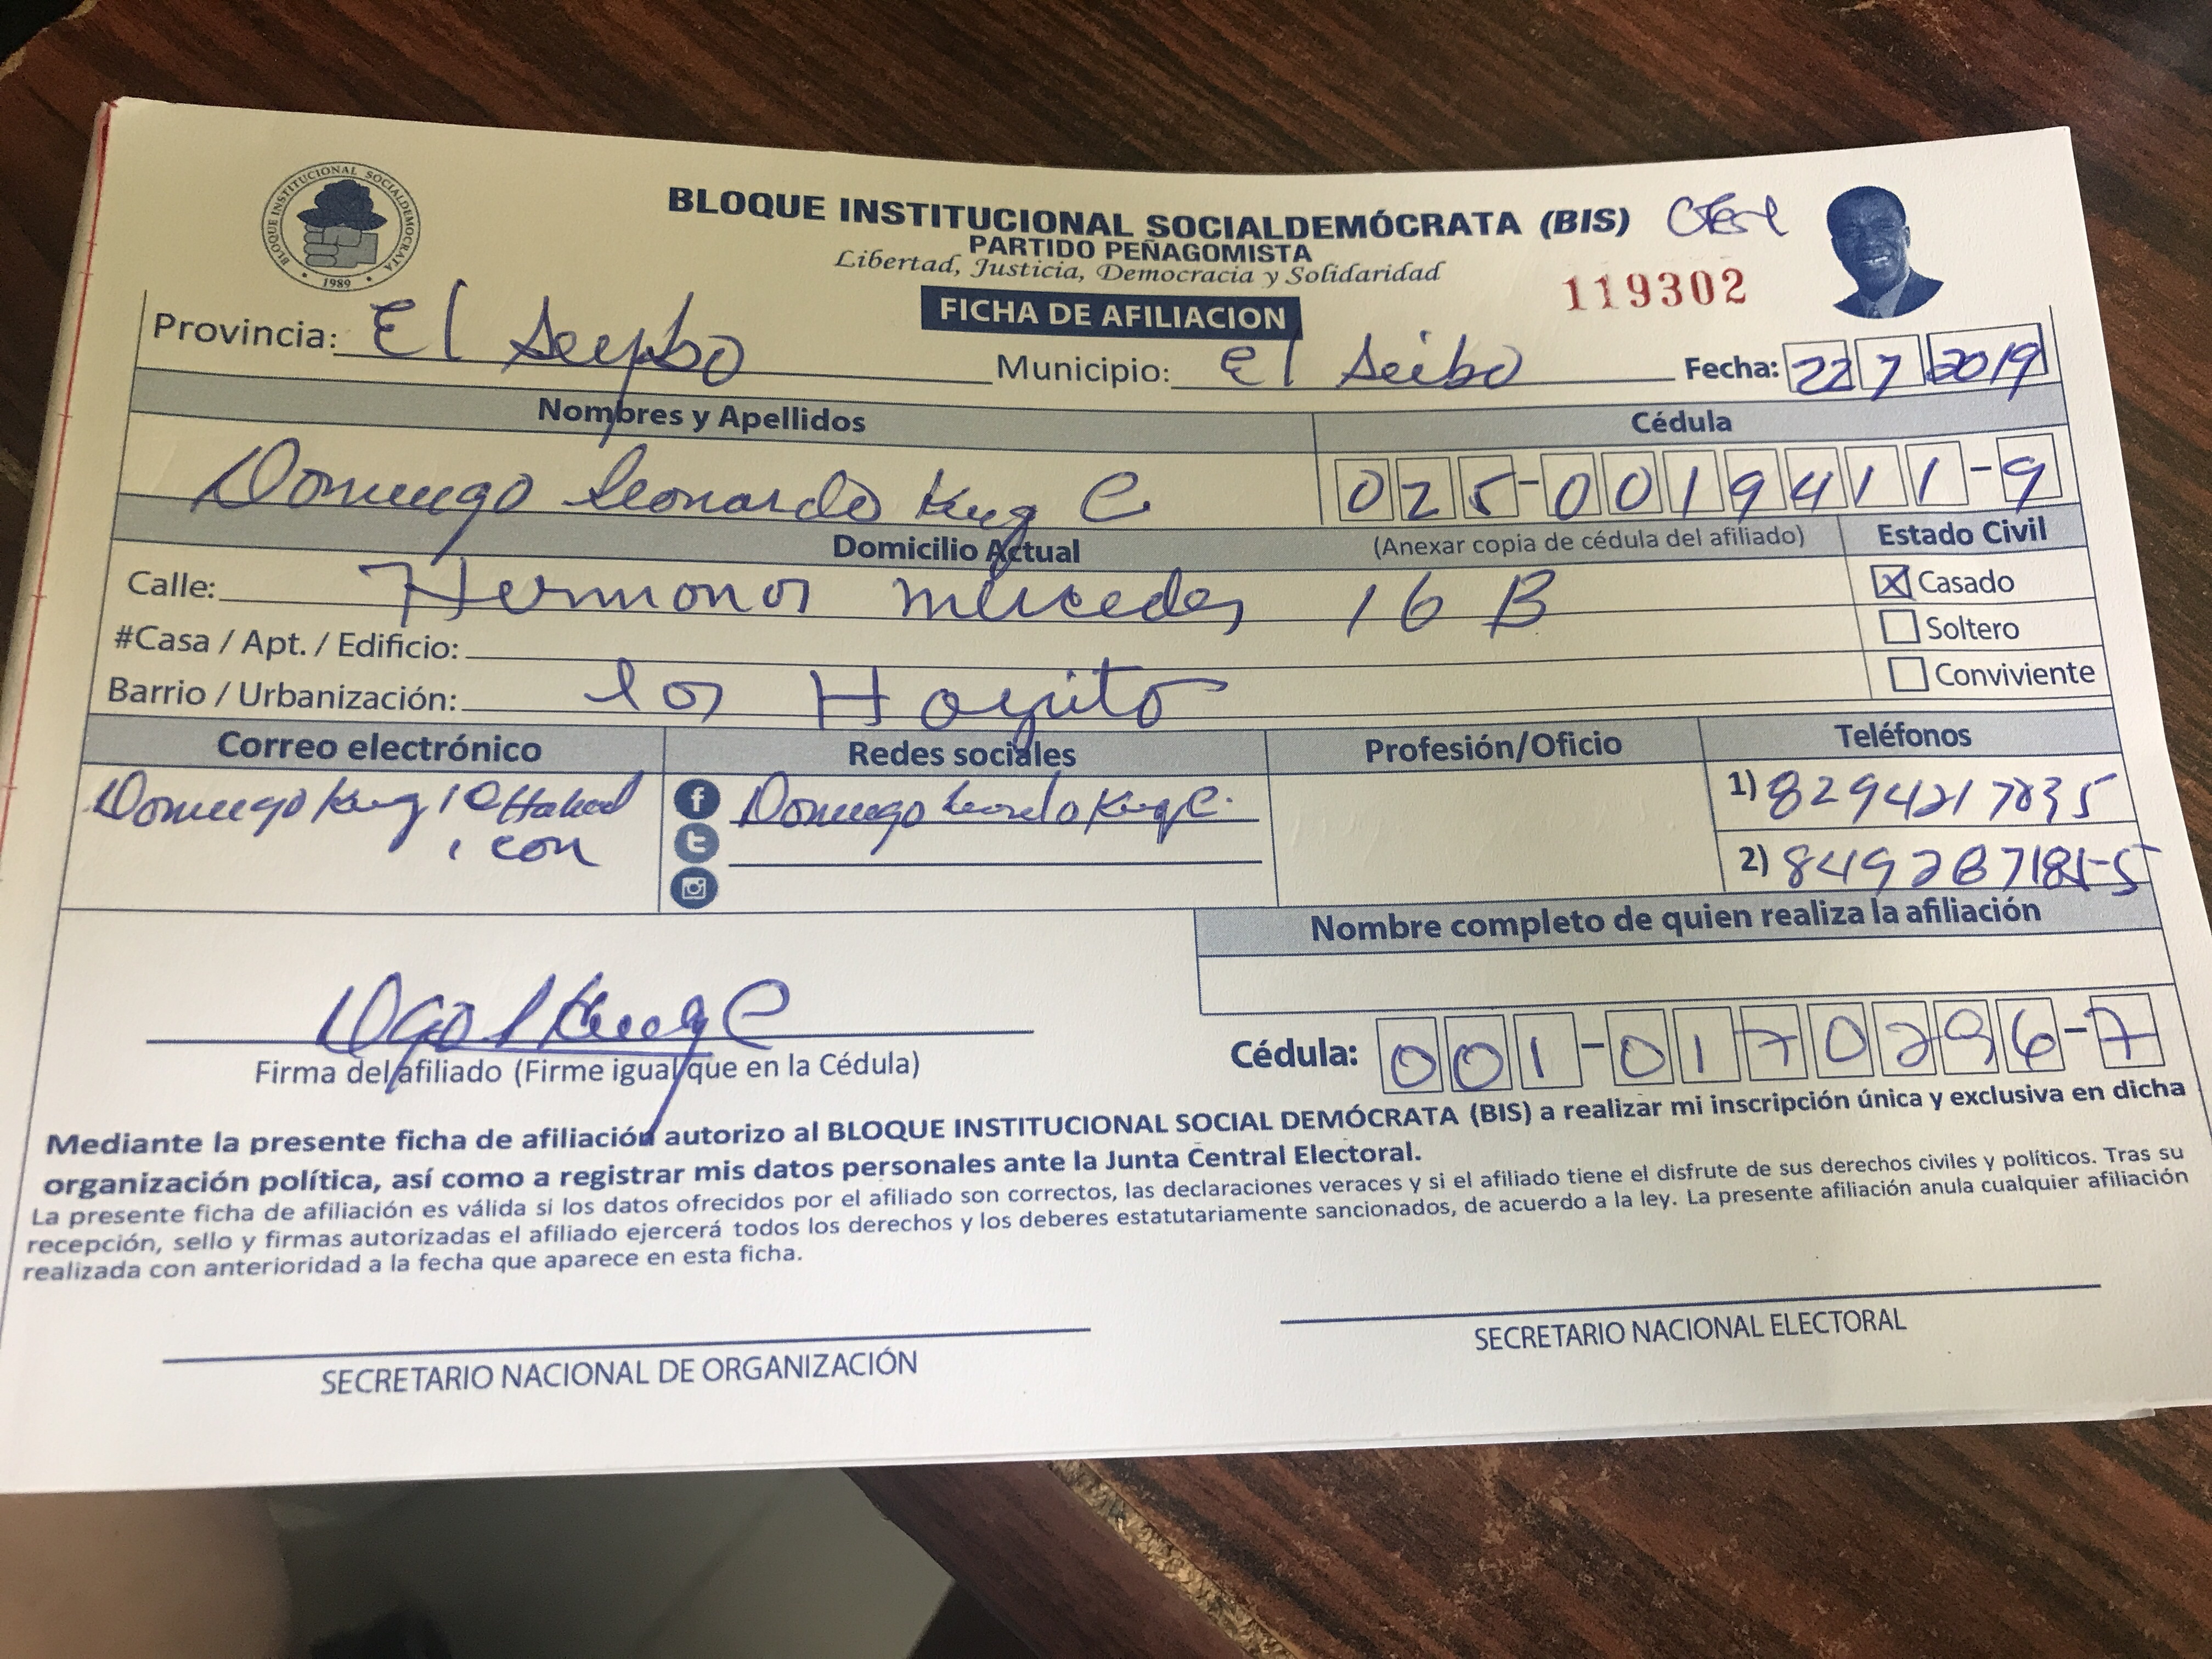 BLOQUE INSTITUCIONAL SOCIALDEMOCRATA
1989
BLOQUE INSTITUCIONAL SOCIALDEMÓCRATA (BIS)
PARTIDO PEÑAGOMISTA
Libertad, Justicia, Democracia y Solidaridad
119302
FICHA DE AFILIACION
Provincia: El Seybo
Municipio: El Seibo
Fecha: 22 7 2019
Nombres y Apellidos
Cédula
Domingo Leonardo King C.
025-0019411-9
Domicilio Actual
(Anexar copia de cédula del afiliado)
Estado Civil
Calle: Hermanos mercedes 16 B
X Casado
#Casa / Apt. / Edificio:
Soltero
Barrio / Urbanización: los Hoyito
Conviviente
Correo electrónico
Redes sociales
Profesión/Oficio
Teléfonos
Domingo King 1@
.com
Domingo Leonardo King C.
1) 8294217835
2)
Nombre completo de quien realiza la afiliación
Firma del afiliado (Firme igual que en la Cédula)
Cédula: 001-0170296-7
Mediante la presente ficha de afiliación autorizo al BLOQUE INSTITUCIONAL SOCIAL DEMÓCRATA (BIS) a realizar mi inscripción única y exclusiva en dicha
organización política, así como a registrar mis datos personales ante la Junta Central Electoral.
La presente ficha de afiliación es válida si los datos ofrecidos por el afiliado son correctos, las declaraciones veraces y si el afiliado tiene el disfrute de sus derechos civiles y políticos. Tras su
recepción, sello y firmas autorizadas el afiliado ejercerá todos los derechos y los deberes estatutariamente sancionados, de acuerdo a la ley. La presente afiliación anula cualquier afiliación
realizada con anterioridad a la fecha que aparece en esta ficha.
SECRETARIO NACIONAL DE ORGANIZACIÓN
SECRETARIO NACIONAL ELECTORAL